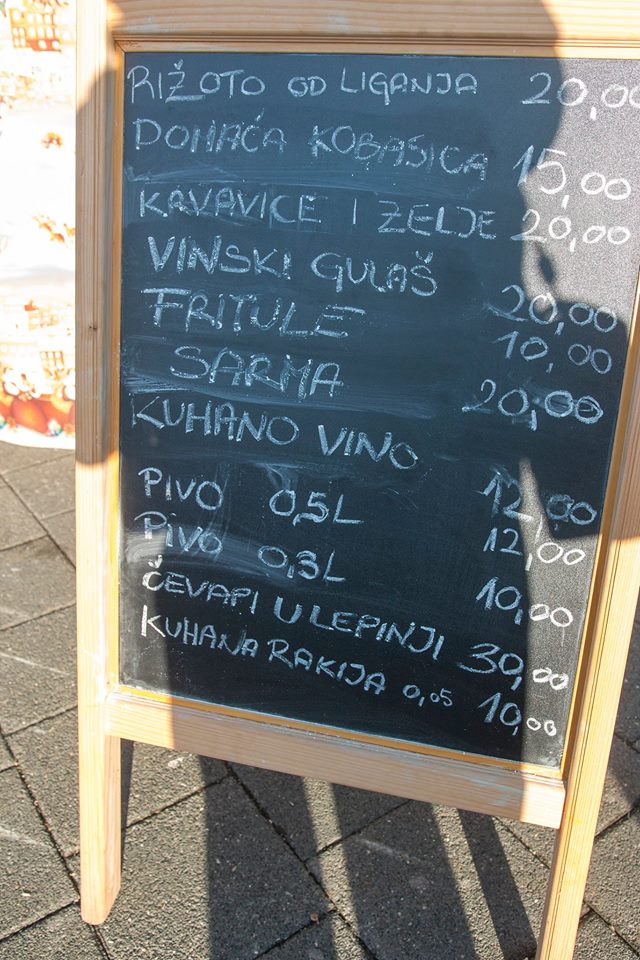 RIŽOTO OD LIGANJA 20,00
DOMAĆA KOBASICA 15,00
KRVAVICE I ZELJE 20,00
VINSKI GULAŠ 20,00
FRITULE 10,00
SARMA 20,00
KUHANO VINO 12,00
PIVO 0,5L 12,00
PIVO 0,3L 10,00
ČEVAPI U LEPINJI 30,00
KUHANA RAKIJA 0,05 10,00